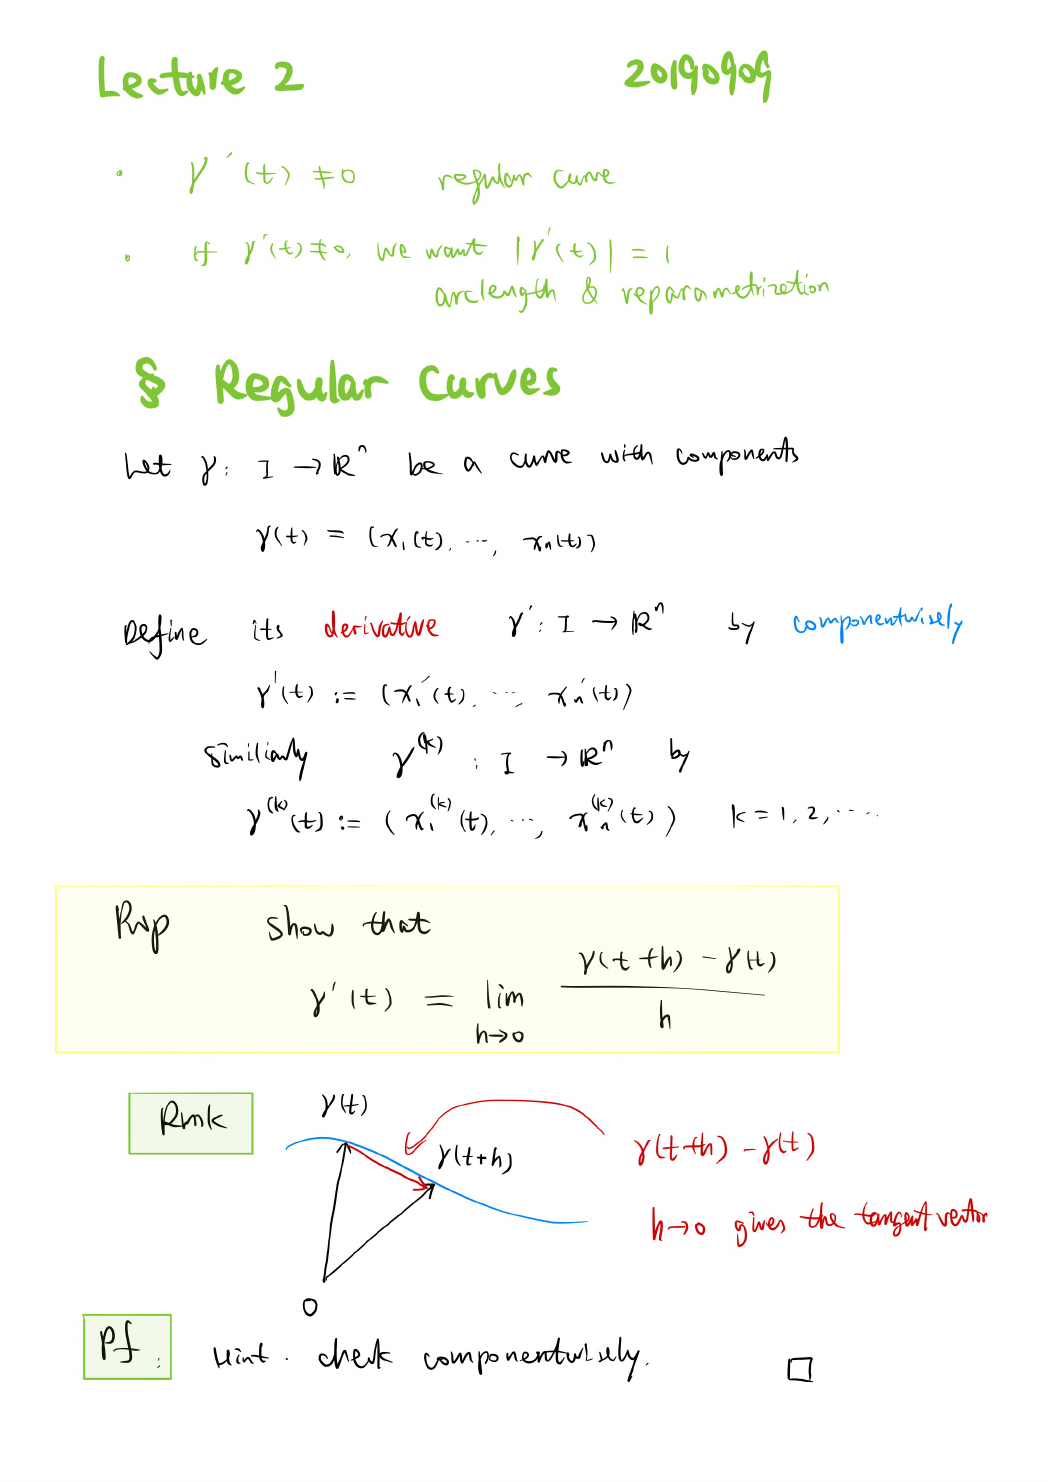 Lecture 2 20190909
· γ'(t) ≠ 0 regular curve
· If γ'(t) ≠ 0, we want |γ'(t)| = 1
arclength & reparametrization
§ Regular Curves
Let γ: I → ℝⁿ be a curve with components
γ(t) = (x₁(t), ..., xₙ(t))
Define its derivative γ': I → ℝⁿ by componentwisely
γ'(t) := (x₁'(t), ..., xₙ'(t))
Similiarly γ⁽ᵏ⁾ : I → ℝⁿ by
γ⁽ᵏ⁾(t) := (x₁⁽ᵏ⁾(t), ..., xₙ⁽ᵏ⁾(t)) k = 1, 2, ....
Prop show that
γ'(t) = lim_{h→0} (γ(t+h) - γ(t)) / h
Rmk
γ(t)
γ(t+h)
γ(t+h) - γ(t)
h→0 gives the tangent vector
O
Pf: Hint. check componentwisely. □